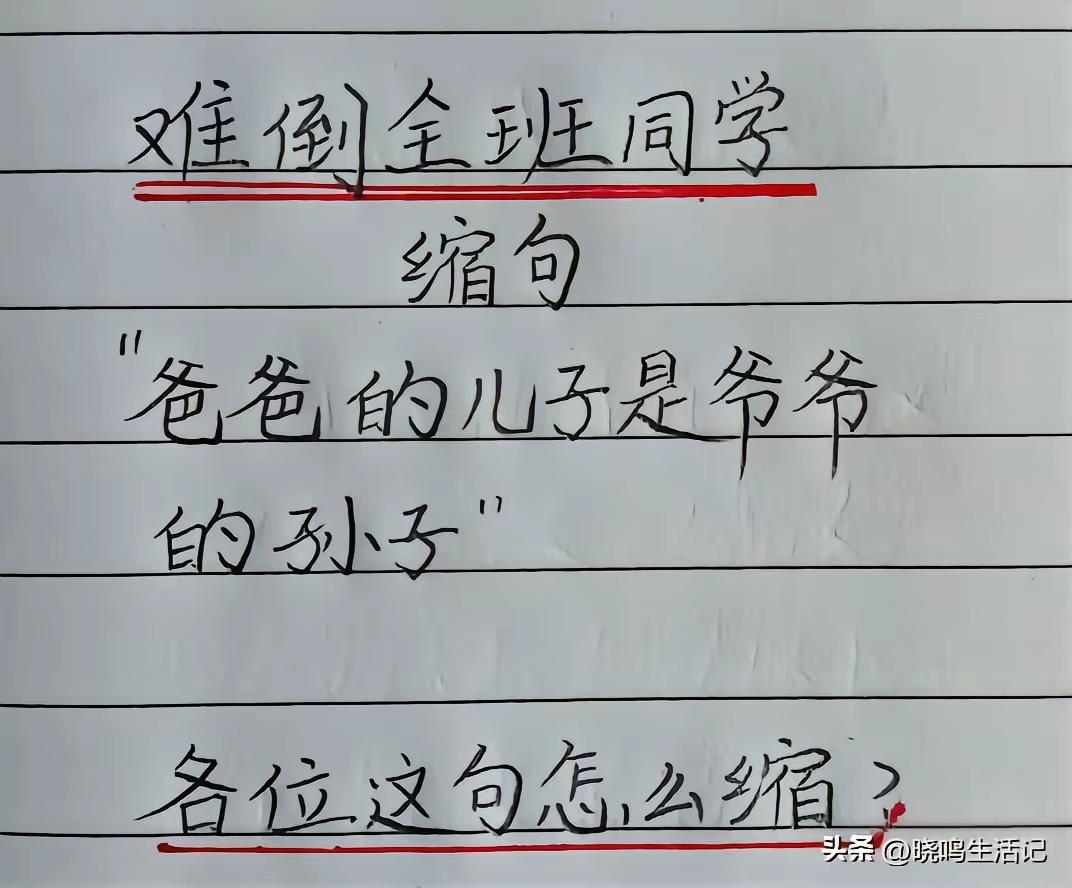 难倒全班同学
缩句
"爸爸的儿子是爷爷
的孙子"
各位这句怎么缩?
头条 @晓鸣生活记